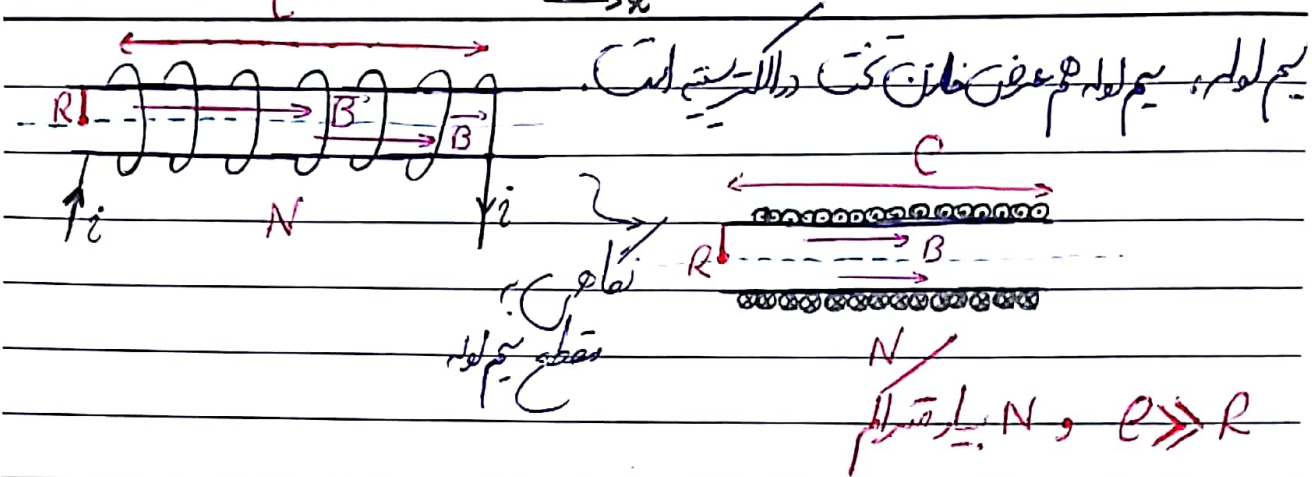 l
x
سیم لوله، سیم لوله هم عرض خازن تخت در الکتریسیته است.
R B B
i N i
l
R B
نگاهی به
مقطع سیم لوله
N
l >> R و N بسیار متراکم